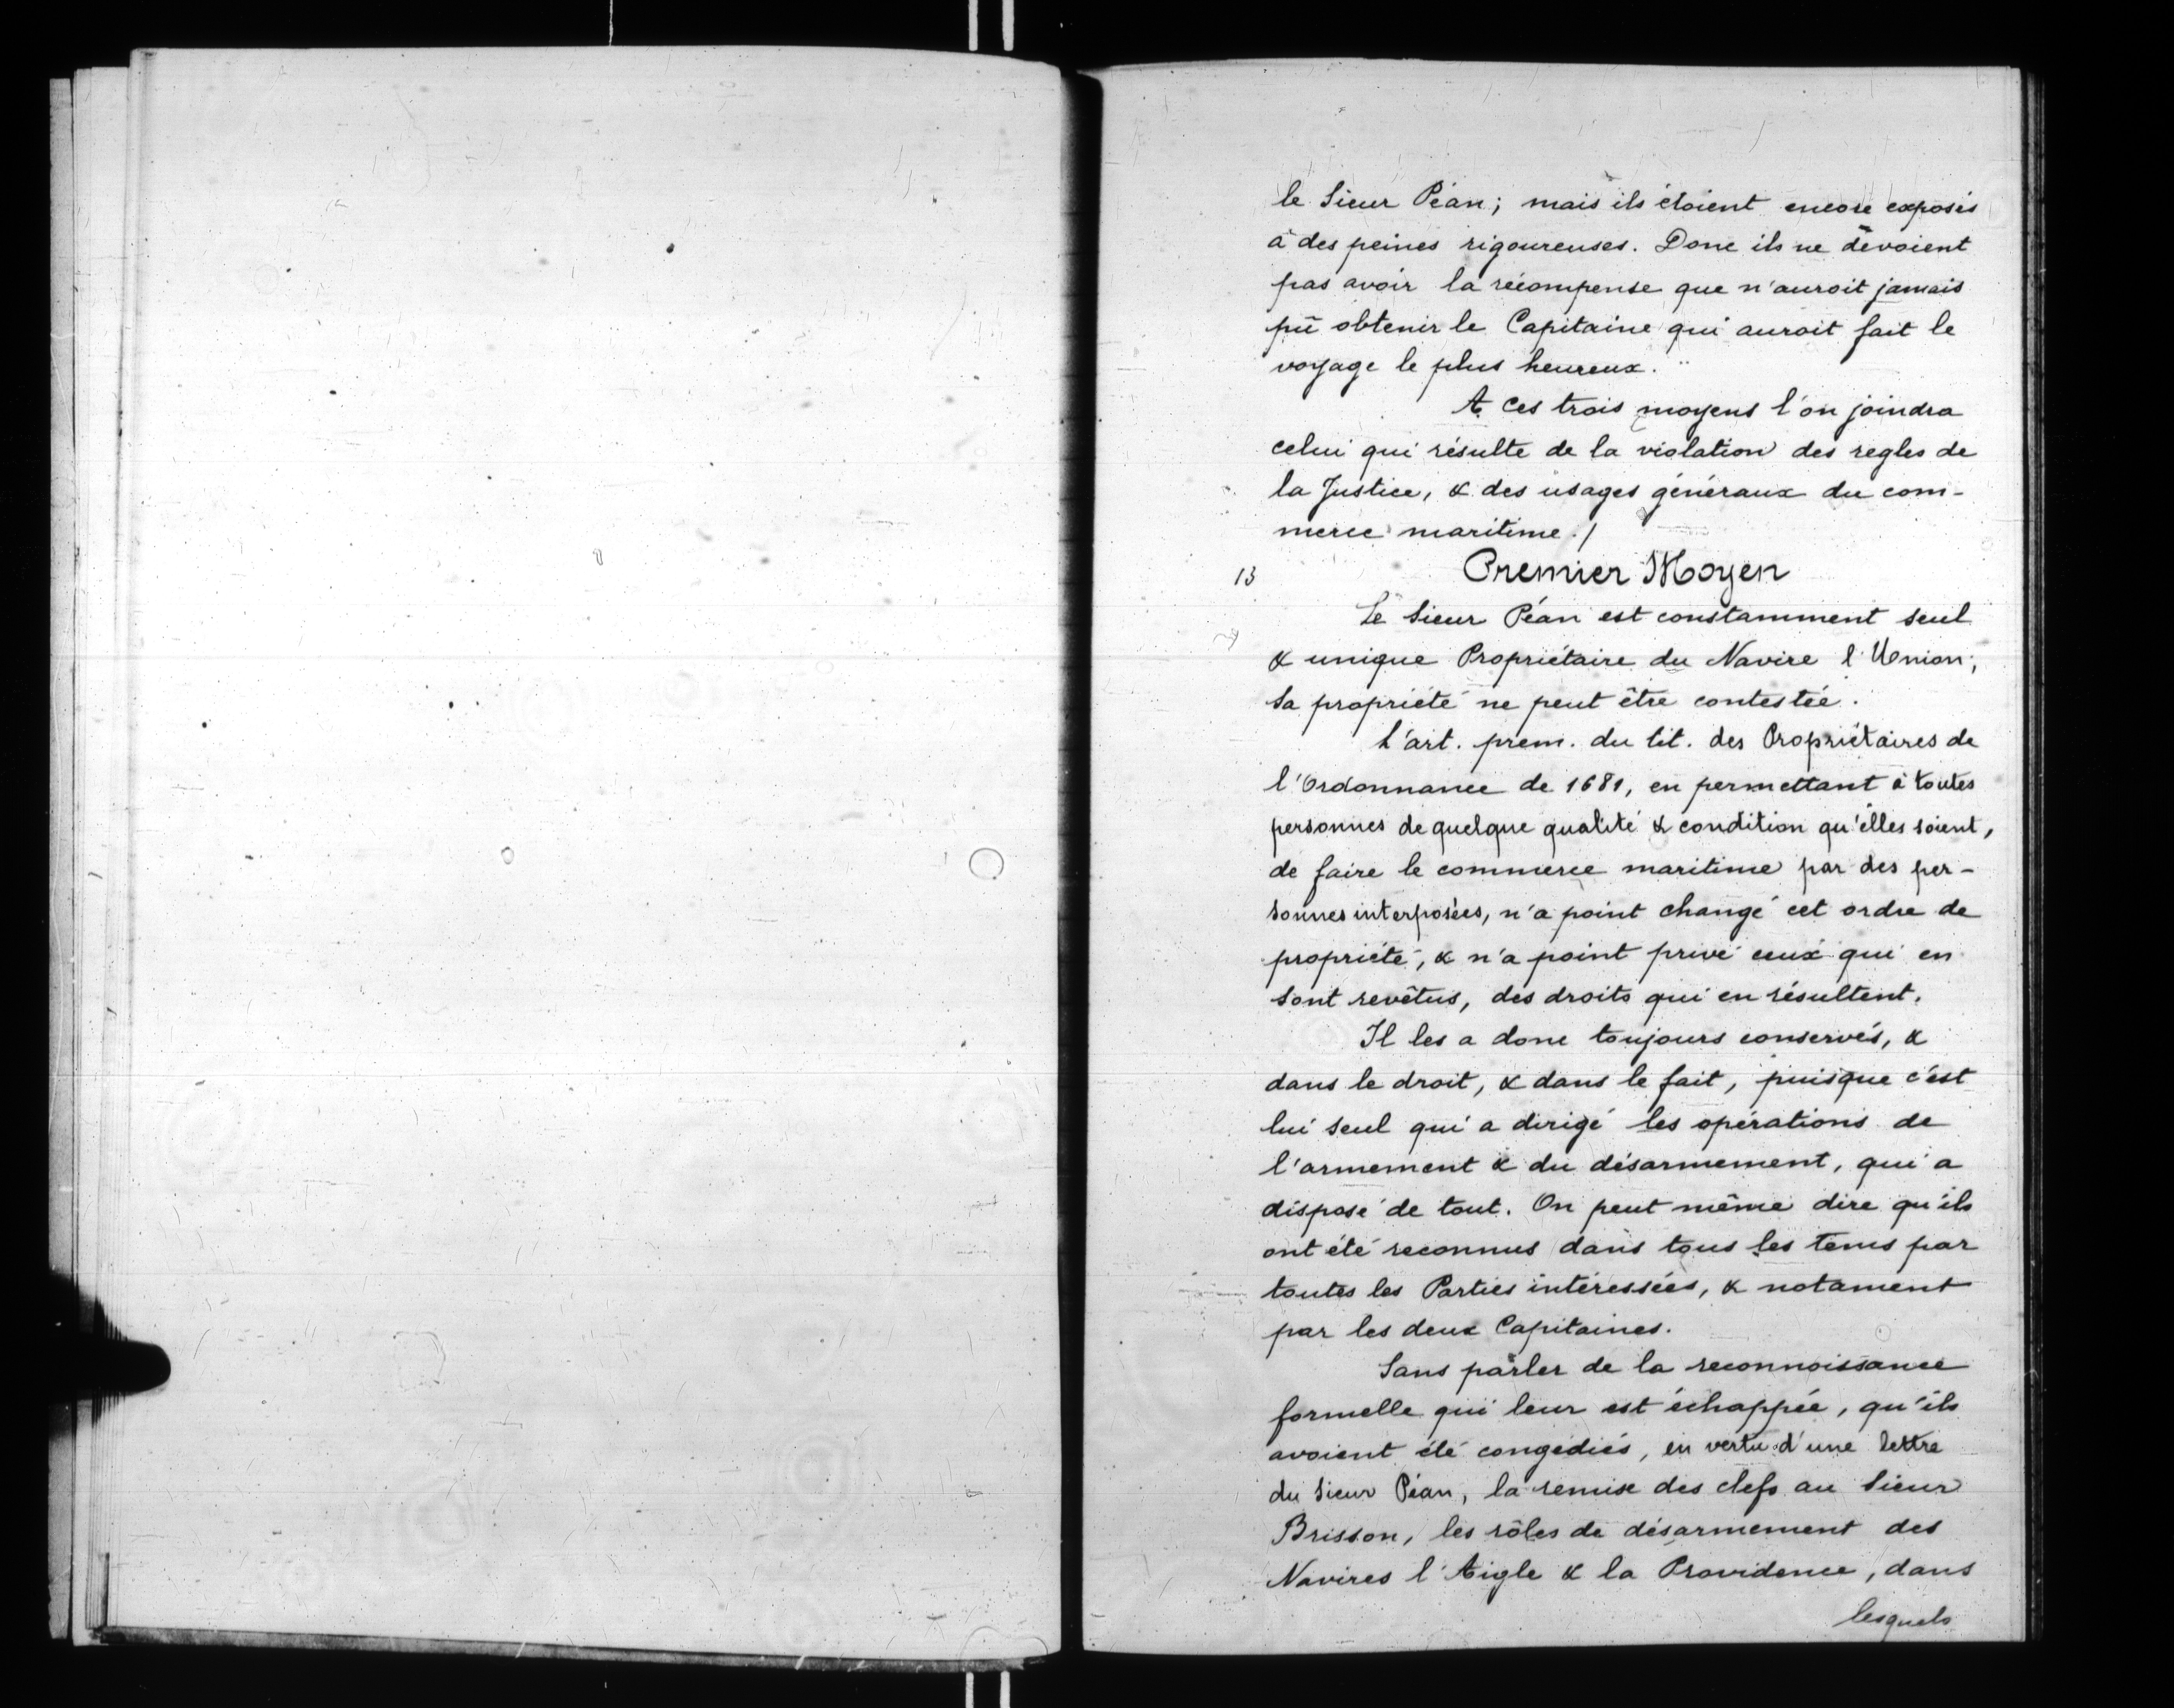 le Sieur Péan; mais ils étoient encore exposés
à des peines rigoureuses. Donc ils ne dévoient
pas avoir la récompense que n'auroit jamais
pû obtenir le Capitaine qui auroit fait le
voyage le plus heureux.
A ces trois moyens l'on joindra
celui qui résulte de la violation des regles de
la Justice, & des usages généraux du com-
merce maritime./
13 Premier Moyen
Le Sieur Péan est constamment seul
& unique Propriétaire du Navire l'Union;
sa propriété ne peut être contestée.
L'art. prem. du tit. des Propriétaires de
l'Ordonnance de 1681, en permettant à toutes
personnes de quelque qualité & condition qu'elles soient,
de faire le commerce maritime par des per-
sonnes interposées, n'a point changé cet ordre de
propriété, & n'a point privé ceux qui en
sont revêtus, des droits qui en résultent.
Il les a donc toujours conservés, &
dans le droit, & dans le fait, puisque c'est
lui seul qui a dirigé les opérations de
l'armement & du désarmement, qui a
disposé de tout. On peut même dire qu'ils
ont été reconnus dans tous les tems par
toutes les Parties intéressées, & notament
par les deux Capitaines.
Sans parler de la reconnoissance
formelle qui leur est échappée, qu'ils
avoient été congédiés, en vertu d'une lettre
du Sieur Péan, la remise des clefs au Sieur
Brisson, les rôles de désarmement des
Navires l'Aigle & la Providence, dans
lesquels